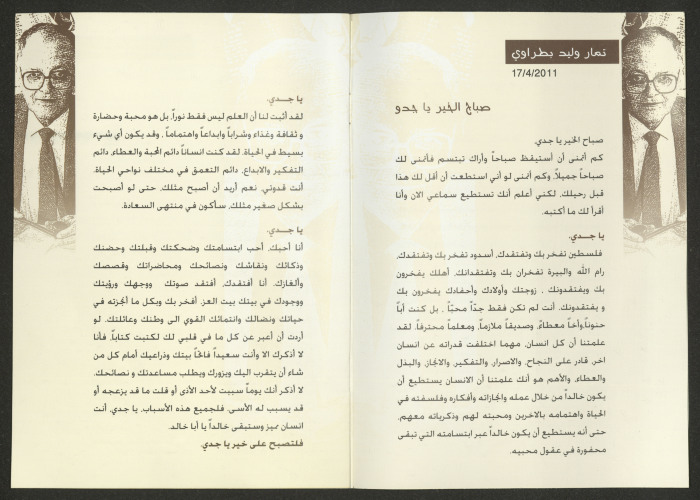 تمار وليد بطراوي
17/4/2011
صباح الخير يا جدو
صباح الخير يا جدي،
كم أتمنى أن أستيقظ صباحاً وأراك تبتسم فأتمنى لك
صباحاً جميلاً، وكم أتمنى لو أني استطعت أن أقل لك هذا
قبل رحيلك، لكني أعلم أنك تستطيع سماعي الان وأنا
أقرأ لك ما أكتبه.
يا جـــدي،
فلسطين تفخر بك وتفتقدك، أسدود تفخر بك وتفتقدك،
رام الله والبيرة تفخران بك وتفتقدانك، أهلك يفخرون
بك ويفتقدونك , زوجتك وأولادك وأحفادك يفخرون بك
و يفتقدونك. أنت لم تكن فقط جدّاً محبّاً , بل كنت أباً
حنوناً،وأخاً معطاءً، وصديقاً ملازماً، ومعلماً محترفاً. لقد
علمتنا أن كل انسان، مهما اختلفت قدراته عن انسان
اخر، قادر على النجاح، والاصرار، والتفكير، والانجاز، والبذل
والعطاء، والأهم هو أنك علمتنا أن الانسان يستطيع أن
يكون خالداً من خلال عمله وانجازاته وأفكاره وفلسفته في
الحياة واهتمامه بالاخرين ومحبته لهم وذكرياته معهم،
حتى أنه يستطيع أن يكون خالداً عبر ابتسامته التي تبقى
محفورة في عقول محبيه.
يا جـــدي،
لقد أثبت لنا أن العلم ليس فقط نوراً، بل هو محبة وحضارة
و ثقافة وغذاء وشراباً وابداعاً واهتماماً , وقد يكون أي شيء
بسيط في الحياة. لقد كنت انساناً دائم المحبة والعطاء، دائم
التفكير والابداع، دائم التعمق في مختلف نواحي الحياة.
أنت قدوتي. نعم أريد أن أصبح مثلك، حتى لو أصبحت
بشكل صغير مثلك، سأكون في منتهى السعادة.
يا جـــدي،
أنا أحبك، أحب ابتسامتك وضحكتك وقبلتك وحضنك
وذكائك ونقاشك ونصائحك ومحاضراتك وقصصك
وألغازك. أنا أفتقدك، أفتقد صوتك ووجهك ورؤيتك
ووجودك في بيتك بيت العز. أفخر بك وبكل ما أنجزته في
حياتك ونضالك وانتمائك القوي الى وطنك وعائلتك. لو
أردت أن أعبر عن كل ما في قلبي لك لكتبت كتاباً، فأنا
لا أذكرك الا وأنت سعيداً فاتحاً بيتك وذراعيك أمام كل من
شاء أن يتقرب اليك ويزورك ويطلب مساعدتك و نصائحك.
لا أذكر أنك يوماً سببت لأحد الأذى أو قلت ما قد يزعجه أو
قد يسبب له الأسى. فلجميع هذه الأسباب، يا جدي، أنت
انسان مميز وستبقى خالداً يا أبا خالد.
فلتصبح على خير يا جدي.